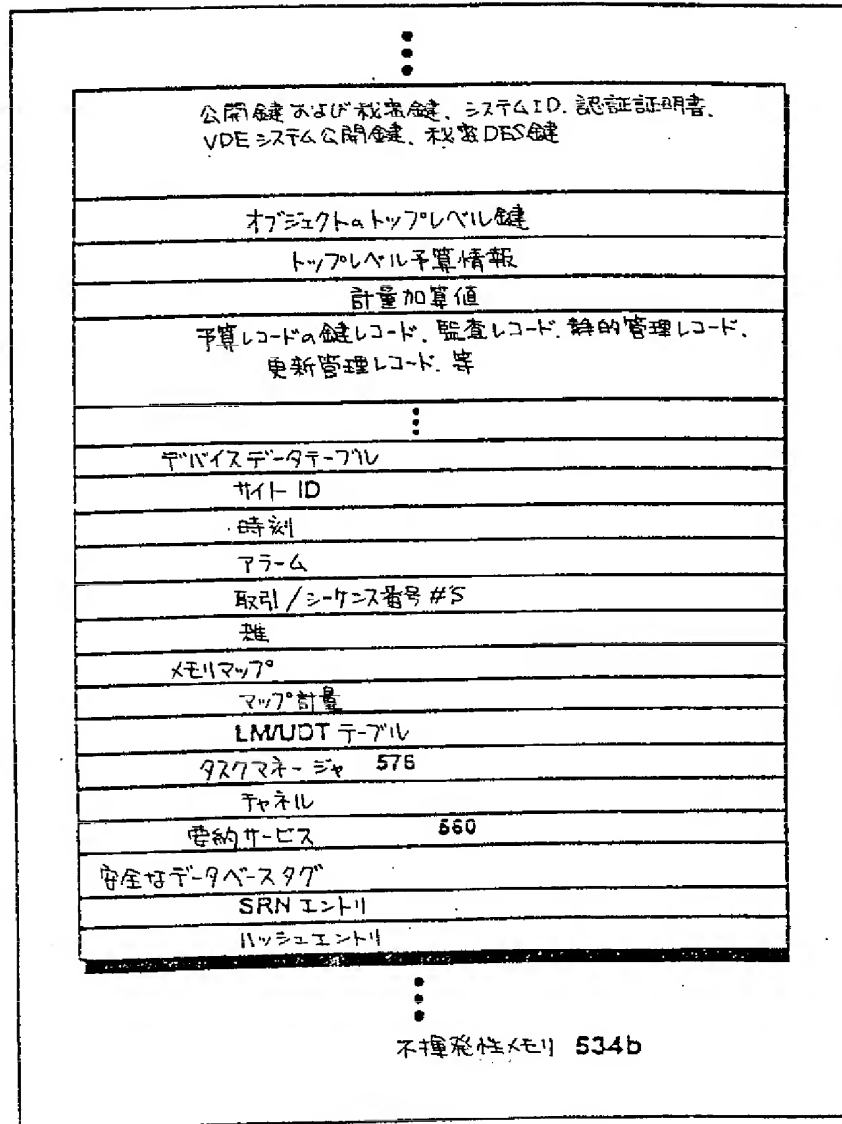 公開鍵および秘密鍵、システムID、認証証明書、
VDEシステム公開鍵、秘密DES鍵
オブジェクトのトップレベル鍵
トップレベル予算情報
計量加算値
予算レコードの鍵レコード、監査レコード、静的管理レコード、
更新管理レコード、等
デバイスデータテーブル
サイト ID
時刻
アラーム
取引/シーケンス番号 #'S
雑
メモリマップ
マップ計量
LM/UDT テーブル
タスクマネージャ 576
チャネル
要約サービス 560
安全なデータベースタグ
SRN エントリ
ハッシュエントリ
不揮発性メモリ 534b